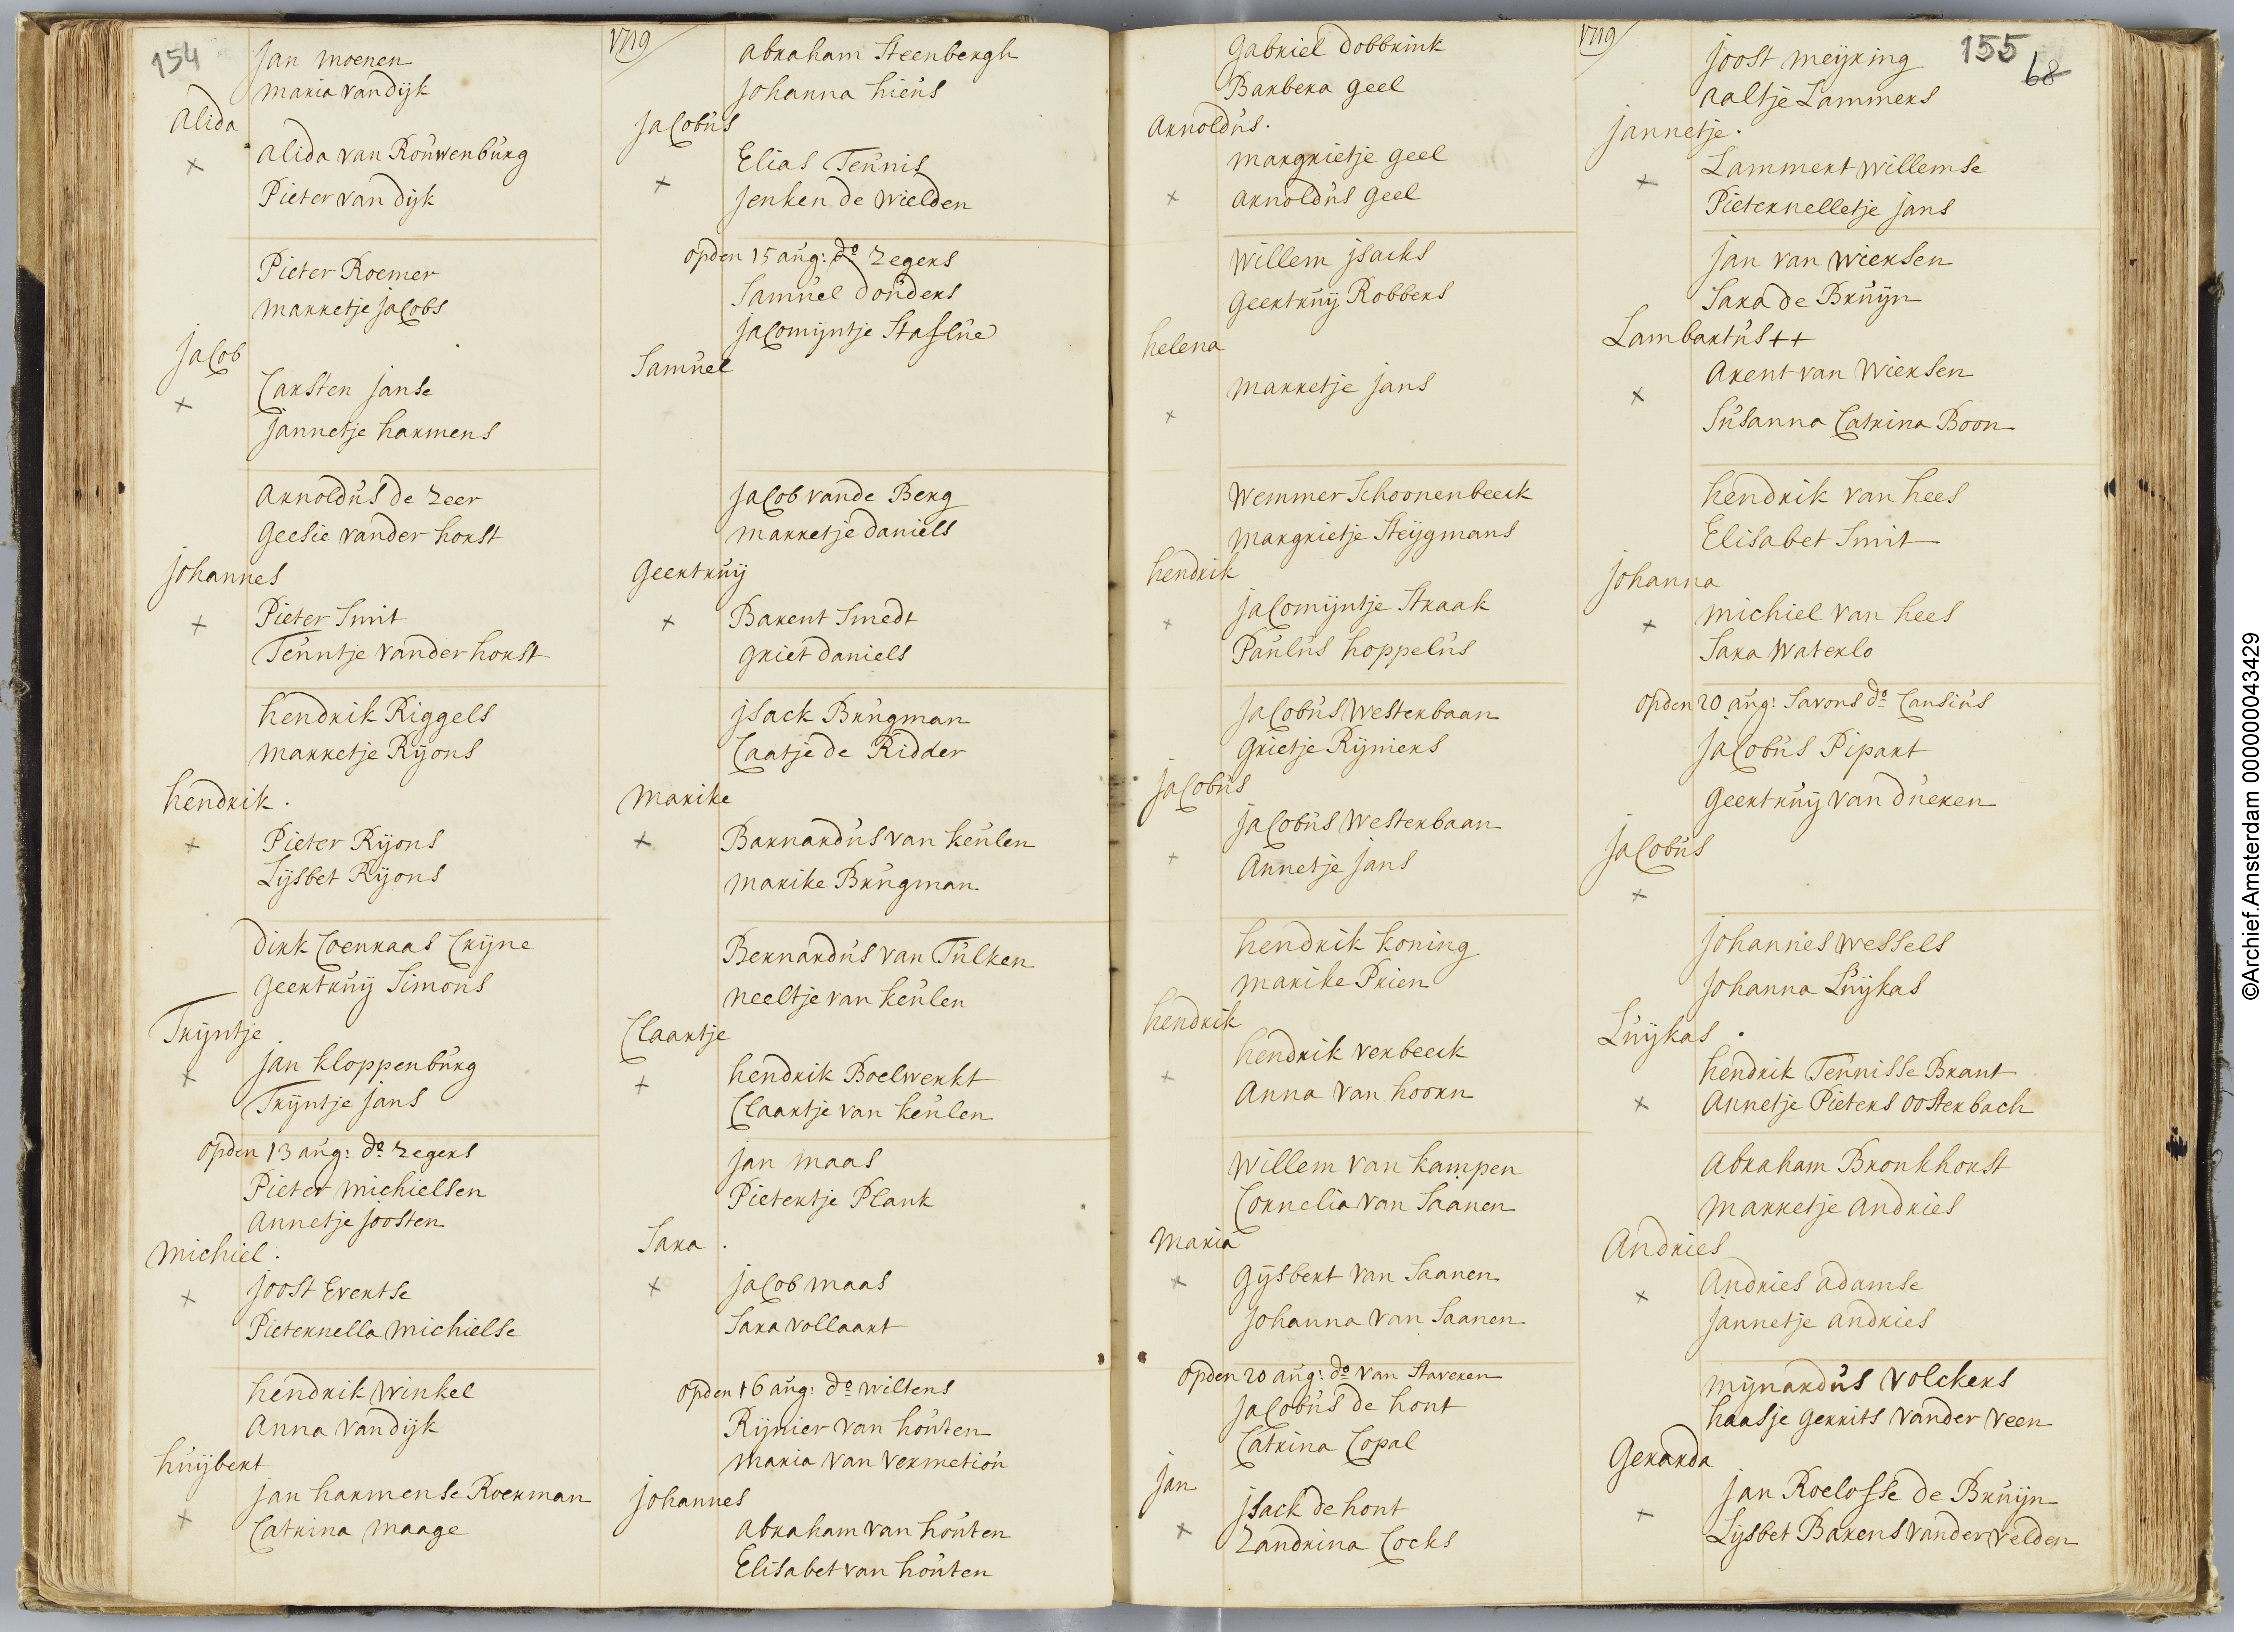 154
Jan Moenen
Maria van Dijk
Alida
Alida van Rouwenburg
Pieter van Dijk
Pieter Roemer
Marretje Jacobs
Jacob
Carsten Janse
Jannetje Harmens
Arnoldus de Zeer
Geesie vander Horst
Johannes
Pieter Smit
Teuntje vander Horst
Hendrik Riggels
Marretje Rijons
Hendrik
Pieter Rijons
Lijsbet Rijons
Dirk Coenraas Crijne
Geertruij Simons
Trijntje
Jan Kloppenburg
Trijntje Jans
opden 13 aug: do Zegers
Pieter Michielsen
Annetje Joosten
Michiel
Joost Evertse
Pieternella Michielse
Hendrik Winkel
Anna van Dijk
Huijbert
Jan Harmense Roerman
Catrina Maage
1719
Abraham Steenbergh
Johanna Hiens
Jacobus
Elias Teunis
Jenken de Wielden
opden 15 aug: do Zegers
Samuel Donders
Jacomijntje Staflue
Samuel
Jacob vande Berg
Marretje Daniels
Geertruij
Barent Smedt
Griet Daniels
Jsack Brugman
Caatje de Ridder
Marike
Barnardus van Keulen
Marike Brugman
Bernardus van Tulken
Neeltje van Keulen
Claartje
Hendrik Boelwerkt
Claartje van Keulen
Jan Maas
Pietertje Plank
Sara
Jacob Maas
Sara Vollaart
opden 16 aug: do Wiltens
Rijnier van Houten
Maria van Vermetion
Johannes
Abraham van Houten
Elisabet van Houten
Gabriel Dobbrink
Barbera Geel
Arnoldus
Margrietje Geel
Arnoldus Geel
Willem Jsacks
Geertruij Robbers
Helena
Marretje Jans
Wemmer Schoonenbeeck
Margrietje Steijgmans
Hendrik
Jacomijntje Straak
Paulus Hoppelus
Jacobus Westerbaan
Grietje Rijniers
Jacobus
Jacobus Westerbaan
Annetje Jans
Hendrik Koning
Marike Prien
Hendrik
Hendrik Verbeeck
Anna van Hoorn
Willem van Kampen
Cornelia van Saanen
Maria
Gijsbert van Saanen
Johanna van Saanen
opden 20 aug: do van Staveren
Jacobus de Hont
Catrina Copal
Jan
Jsack de Hont
Zandrina Cocks
1719
155
68
Joost Meijring
Aaltje Lammers
Jannetje
Lammert Willemse
Pieternelletje Jans
Jan van Wiersen
Sara de Bruijn
Lambartus ++
Arent van Wiersen
Susanna Catrina Boon
Hendrik van Hees
Elisabet Smit
Johanna
Michiel van Hees
Sara Waterlo
opden 20 aug: Savons do Cansius
Jacobus Pipart
Geertruij van Dueren
Jacobus
Johannes Wessels
Johanna Luijkas
Luijkas
Hendrik Teunisse Brant
Annetje Pieters Oosterbach
Abraham Bronkhorst
Marretje Andries
Andries
Andries Adamse
Jannetje Andries
Mijnardus Volckers
Haasje Gerrits vander Veen
Gerarda
Jan Roelofse de Bruijn
Lijsbet Barens vander Velden
©Archief.Amsterdam 000000043429